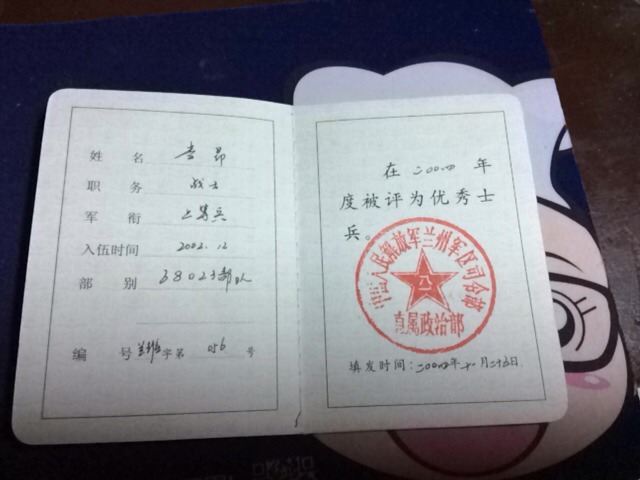 姓 名 李昂
职 务 战士
军 衔 上等兵
入伍时间 2002.12
部 别 68023部队
编 号 字第 056 号
在二00四年
度被评为优秀士
兵。
中国人民解放军兰州军区司令部
直属政治部
填发时间:二00四年 月二十五日